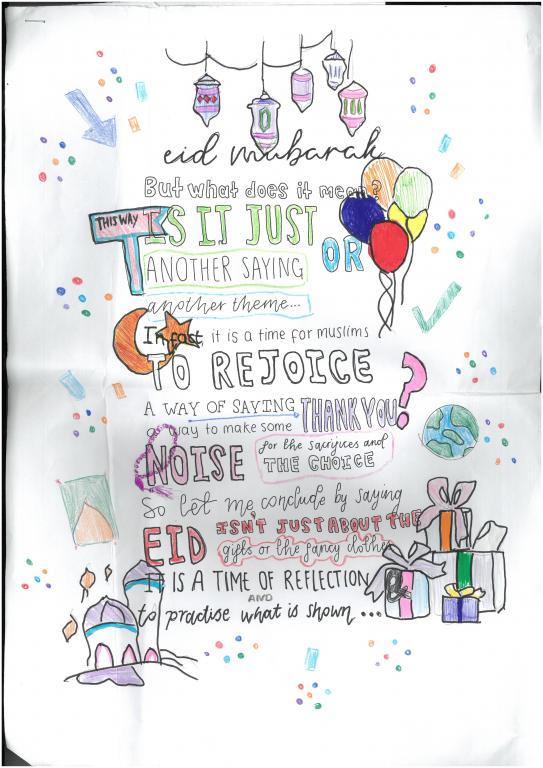 eid mubarak
But what does it mean?
THIS WAY
IS IT JUST
OR
ANOTHER SAYING
another theme...
In fact, it is a time for muslims
TO REJOICE
A WAY OF SAYING THANK YOU
a way to make some
NOISE for the sacrifices and
THE CHOICE
?
So let me conclude by saying
EID ISN'T JUST ABOUT THE
gifts or the fancy clothes
IT IS A TIME OF REFLECTION
AND
to practise what is shown...